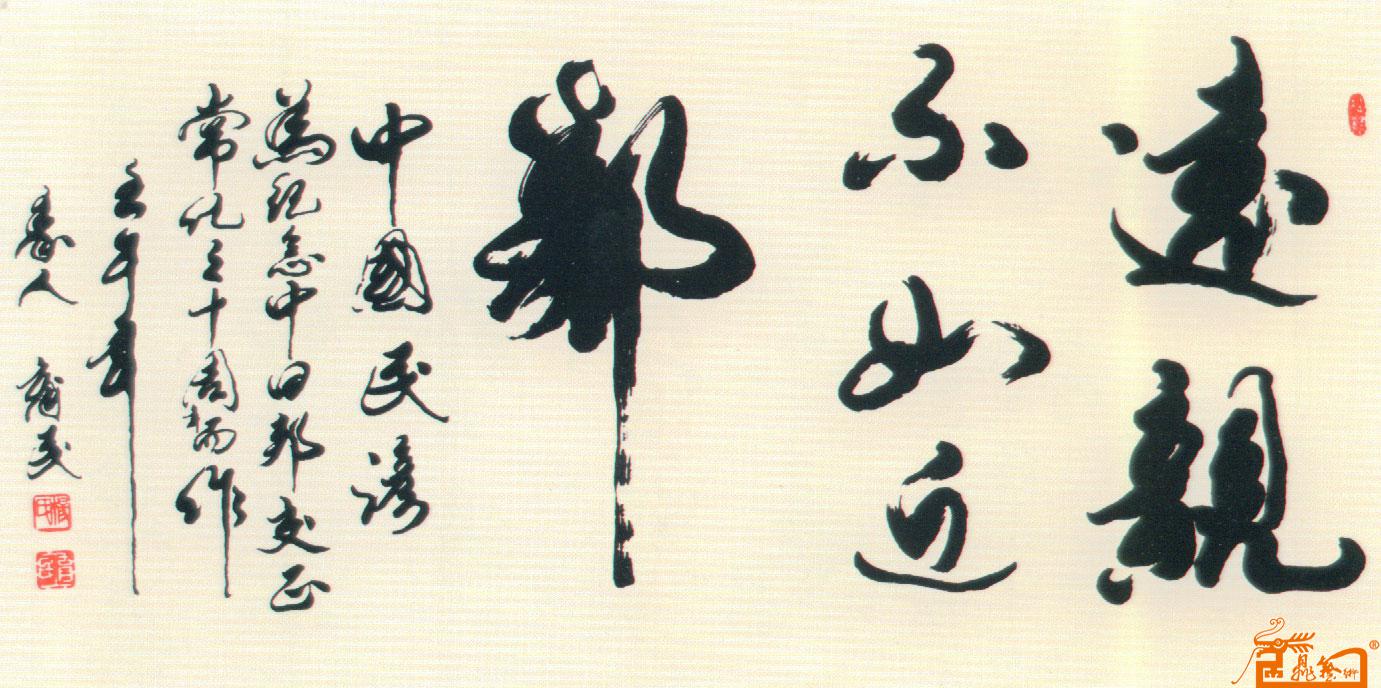 遠親
不如近
鄰
中國民諺
為紀念中日邦交正
常化三十周而作
壬午年
壽人